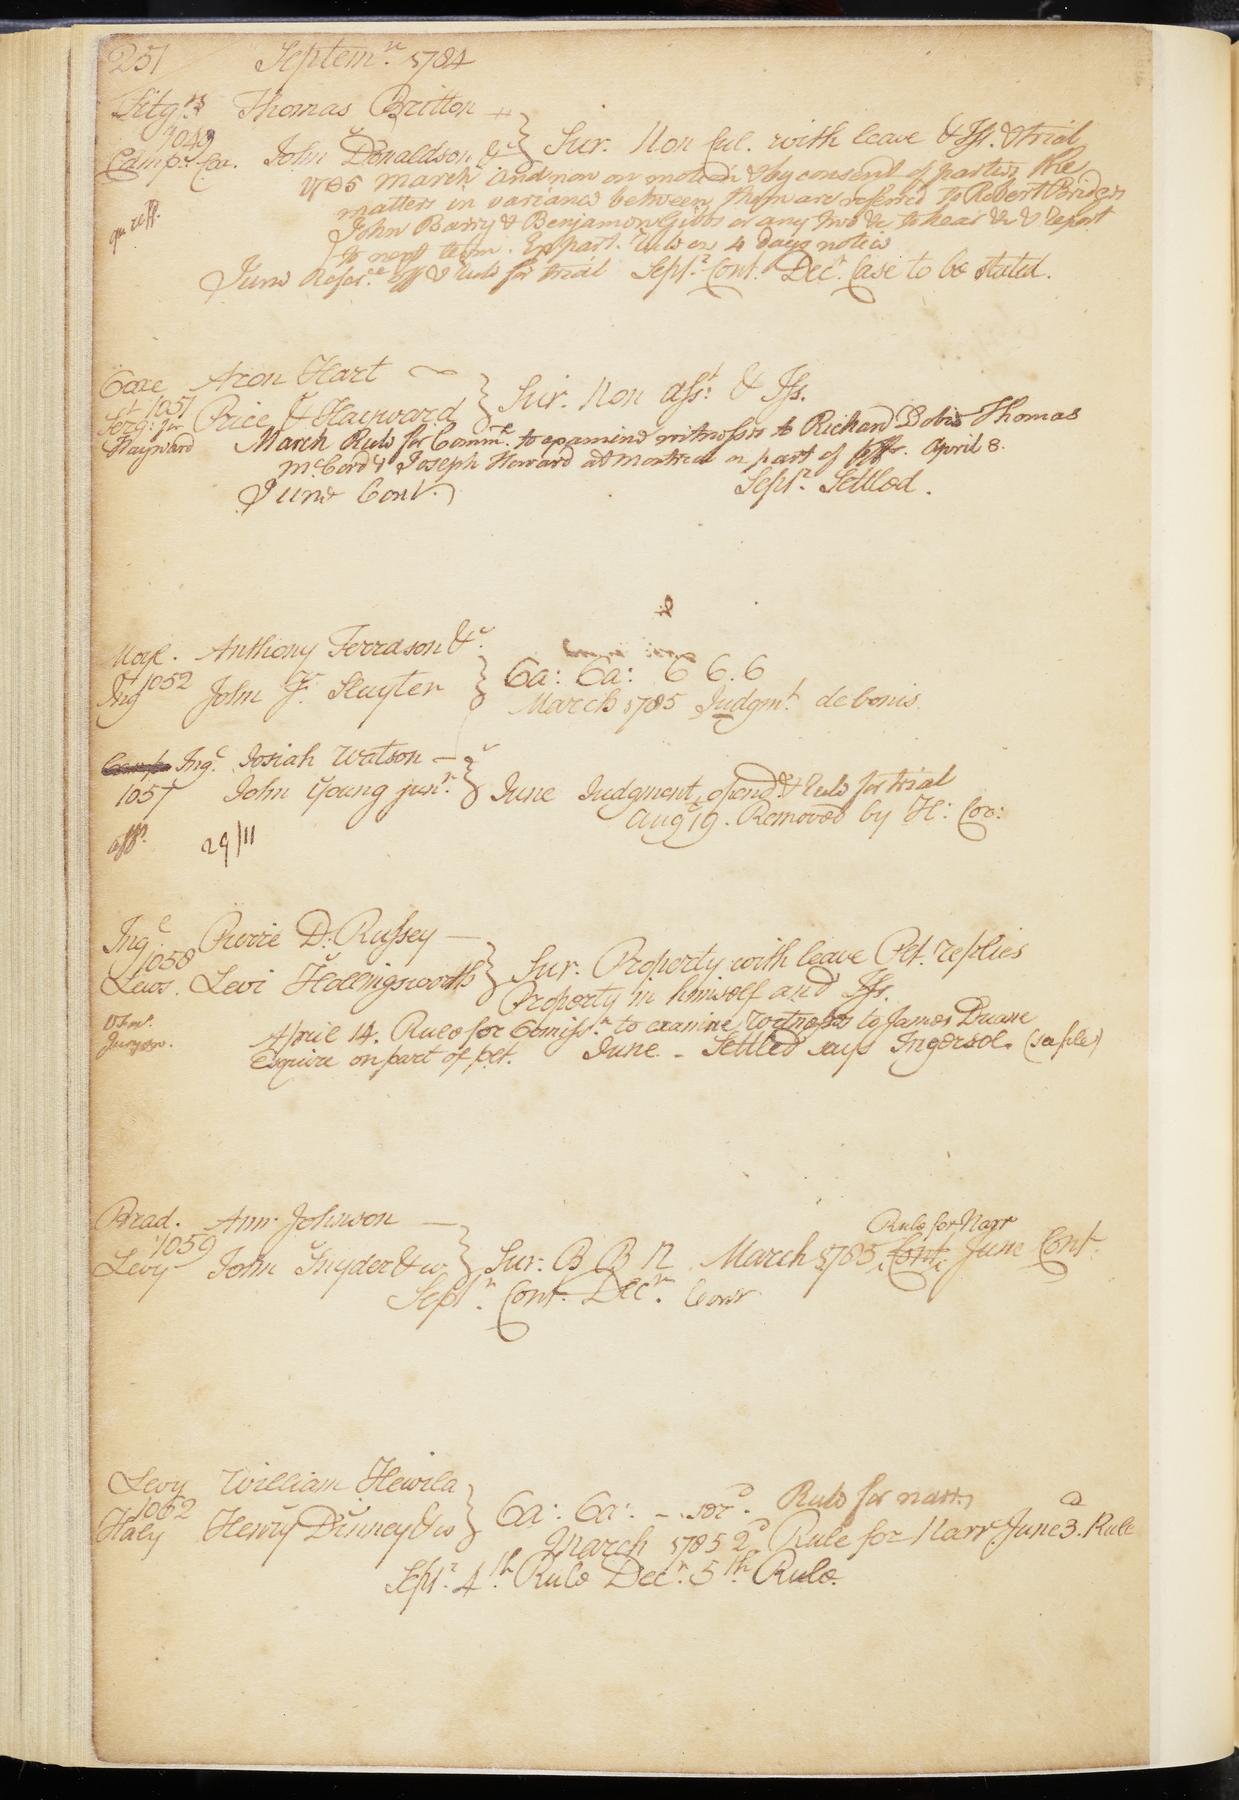 251 Septem.r 1784
Fitzg.s Thomas Britton
1049
Camp. Co. John Donaldson &c } Sur. Non Cul. with leave & Iss. & trial
1785 March And now on motion & by consent of parties, the
matters in variance between them are referred to Robert Bridges
John Barry & Benjamin Gibbs or any two &c to hear &c & report
to next term. Ex part. Rule on 4 days notice
June Refer.ce off & Rule for trial Sept.r Cont. Dec.r Case to be stated.
Coxe Aron Hart
1051
Serg.t for Price & Hayward } Sur. Non Ass.t & Iss.
Hayward March Rule for Comm.n to examine witnesses to Richard Dobie Thomas
McCord & Joseph Howard at Montreal on part of pltff. April 8.
June Cont. Sept.r Settled.
Moyl. Anthony Terrason &c.
1052
Ing John F. Sluyter } Ca: Ca: C C. C
March 1785 Judgm.t de bonis.
Ing.l Josiah Watson
1057 John Young jun.r } June Judgment opend & Rule for trial
Aug 19. Removed by H: Cor:
29/11
Ing.l Pierre D. Russey
1058
Lewis. Levi Hollingsworth } Sur. Property with leave Plt. replies
Property in himself and Iss.
April 14. Rule for Comiss.n to examine witnesses to James Duane
Esquire on part of plt. June - Settled says Ingersol.
Brad. Ann Johnson
1059 Rule for Narr
Levy John Snyder & ux } Sur. B B N March 1785 Cont. June Cont.
Sept.r Cont. Dec.r Cont
Levy William Hewila
1062
Haly Henry Dinney & ux } Ca: Ca: Rule for narr
March 1785 2d Rule for Narr. June 3.d Rule
Sept.r 4.th Rule Dec.r 5.th Rule.